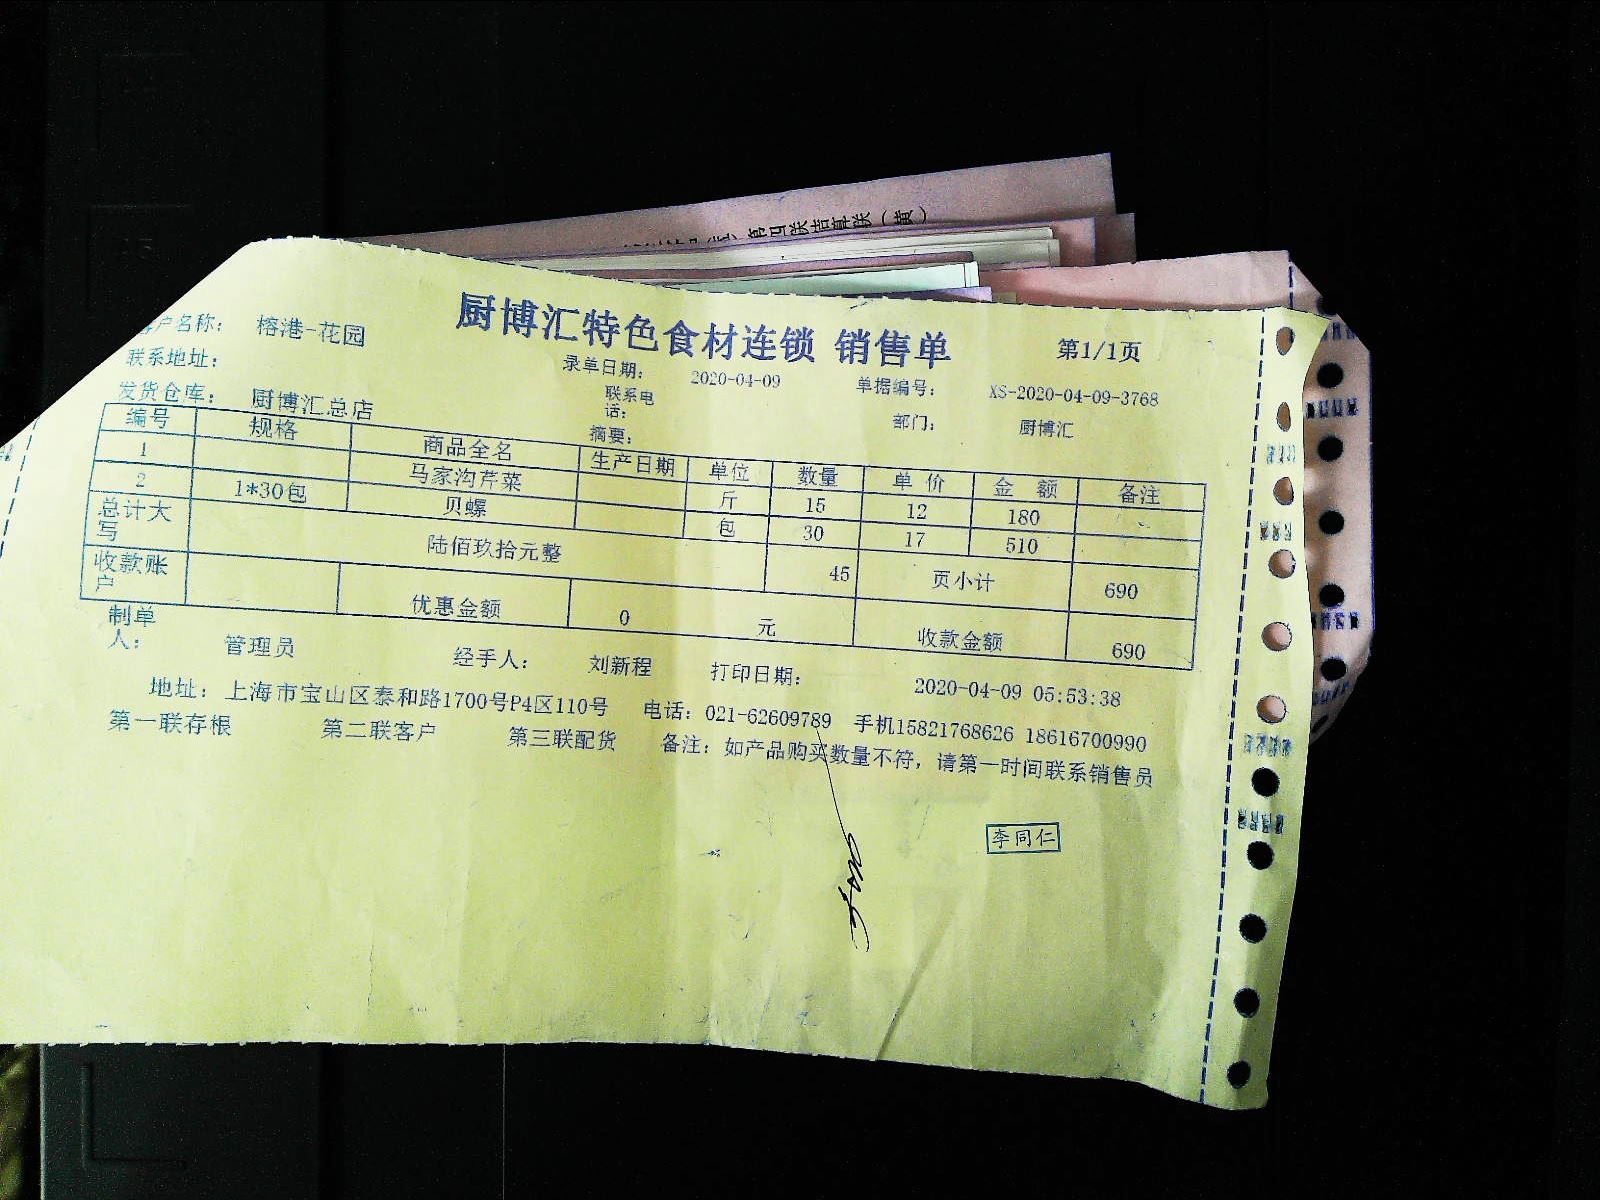 厨博汇特色食材连锁 销售单
第1/1页
客户名称: 榕港-花园
录单日期: 2020-04-09 单据编号: XS-2020-04-09-3768
联系地址: 联系电话: 部门: 厨博汇
发货仓库: 厨博汇总店 摘要:
编号 规格 商品全名 生产日期 单位 数量 单价 金额 备注
1 马家沟芹菜 斤 15 12 180
2 1*30包 贝螺 包 30 17 510
总计大写 陆佰玖拾元整 45 页小计 690
收款账户 优惠金额 0 元 收款金额 690
制单人: 管理员 经手人: 刘新程 打印日期: 2020-04-09 05:53:38
地址: 上海市宝山区泰和路1700号P4区110号 电话: 021-62609789 手机15821768626 18616700990
第一联存根 第二联客户 第三联配货 备注: 如产品购买数量不符, 请第一时间联系销售员
李同仁